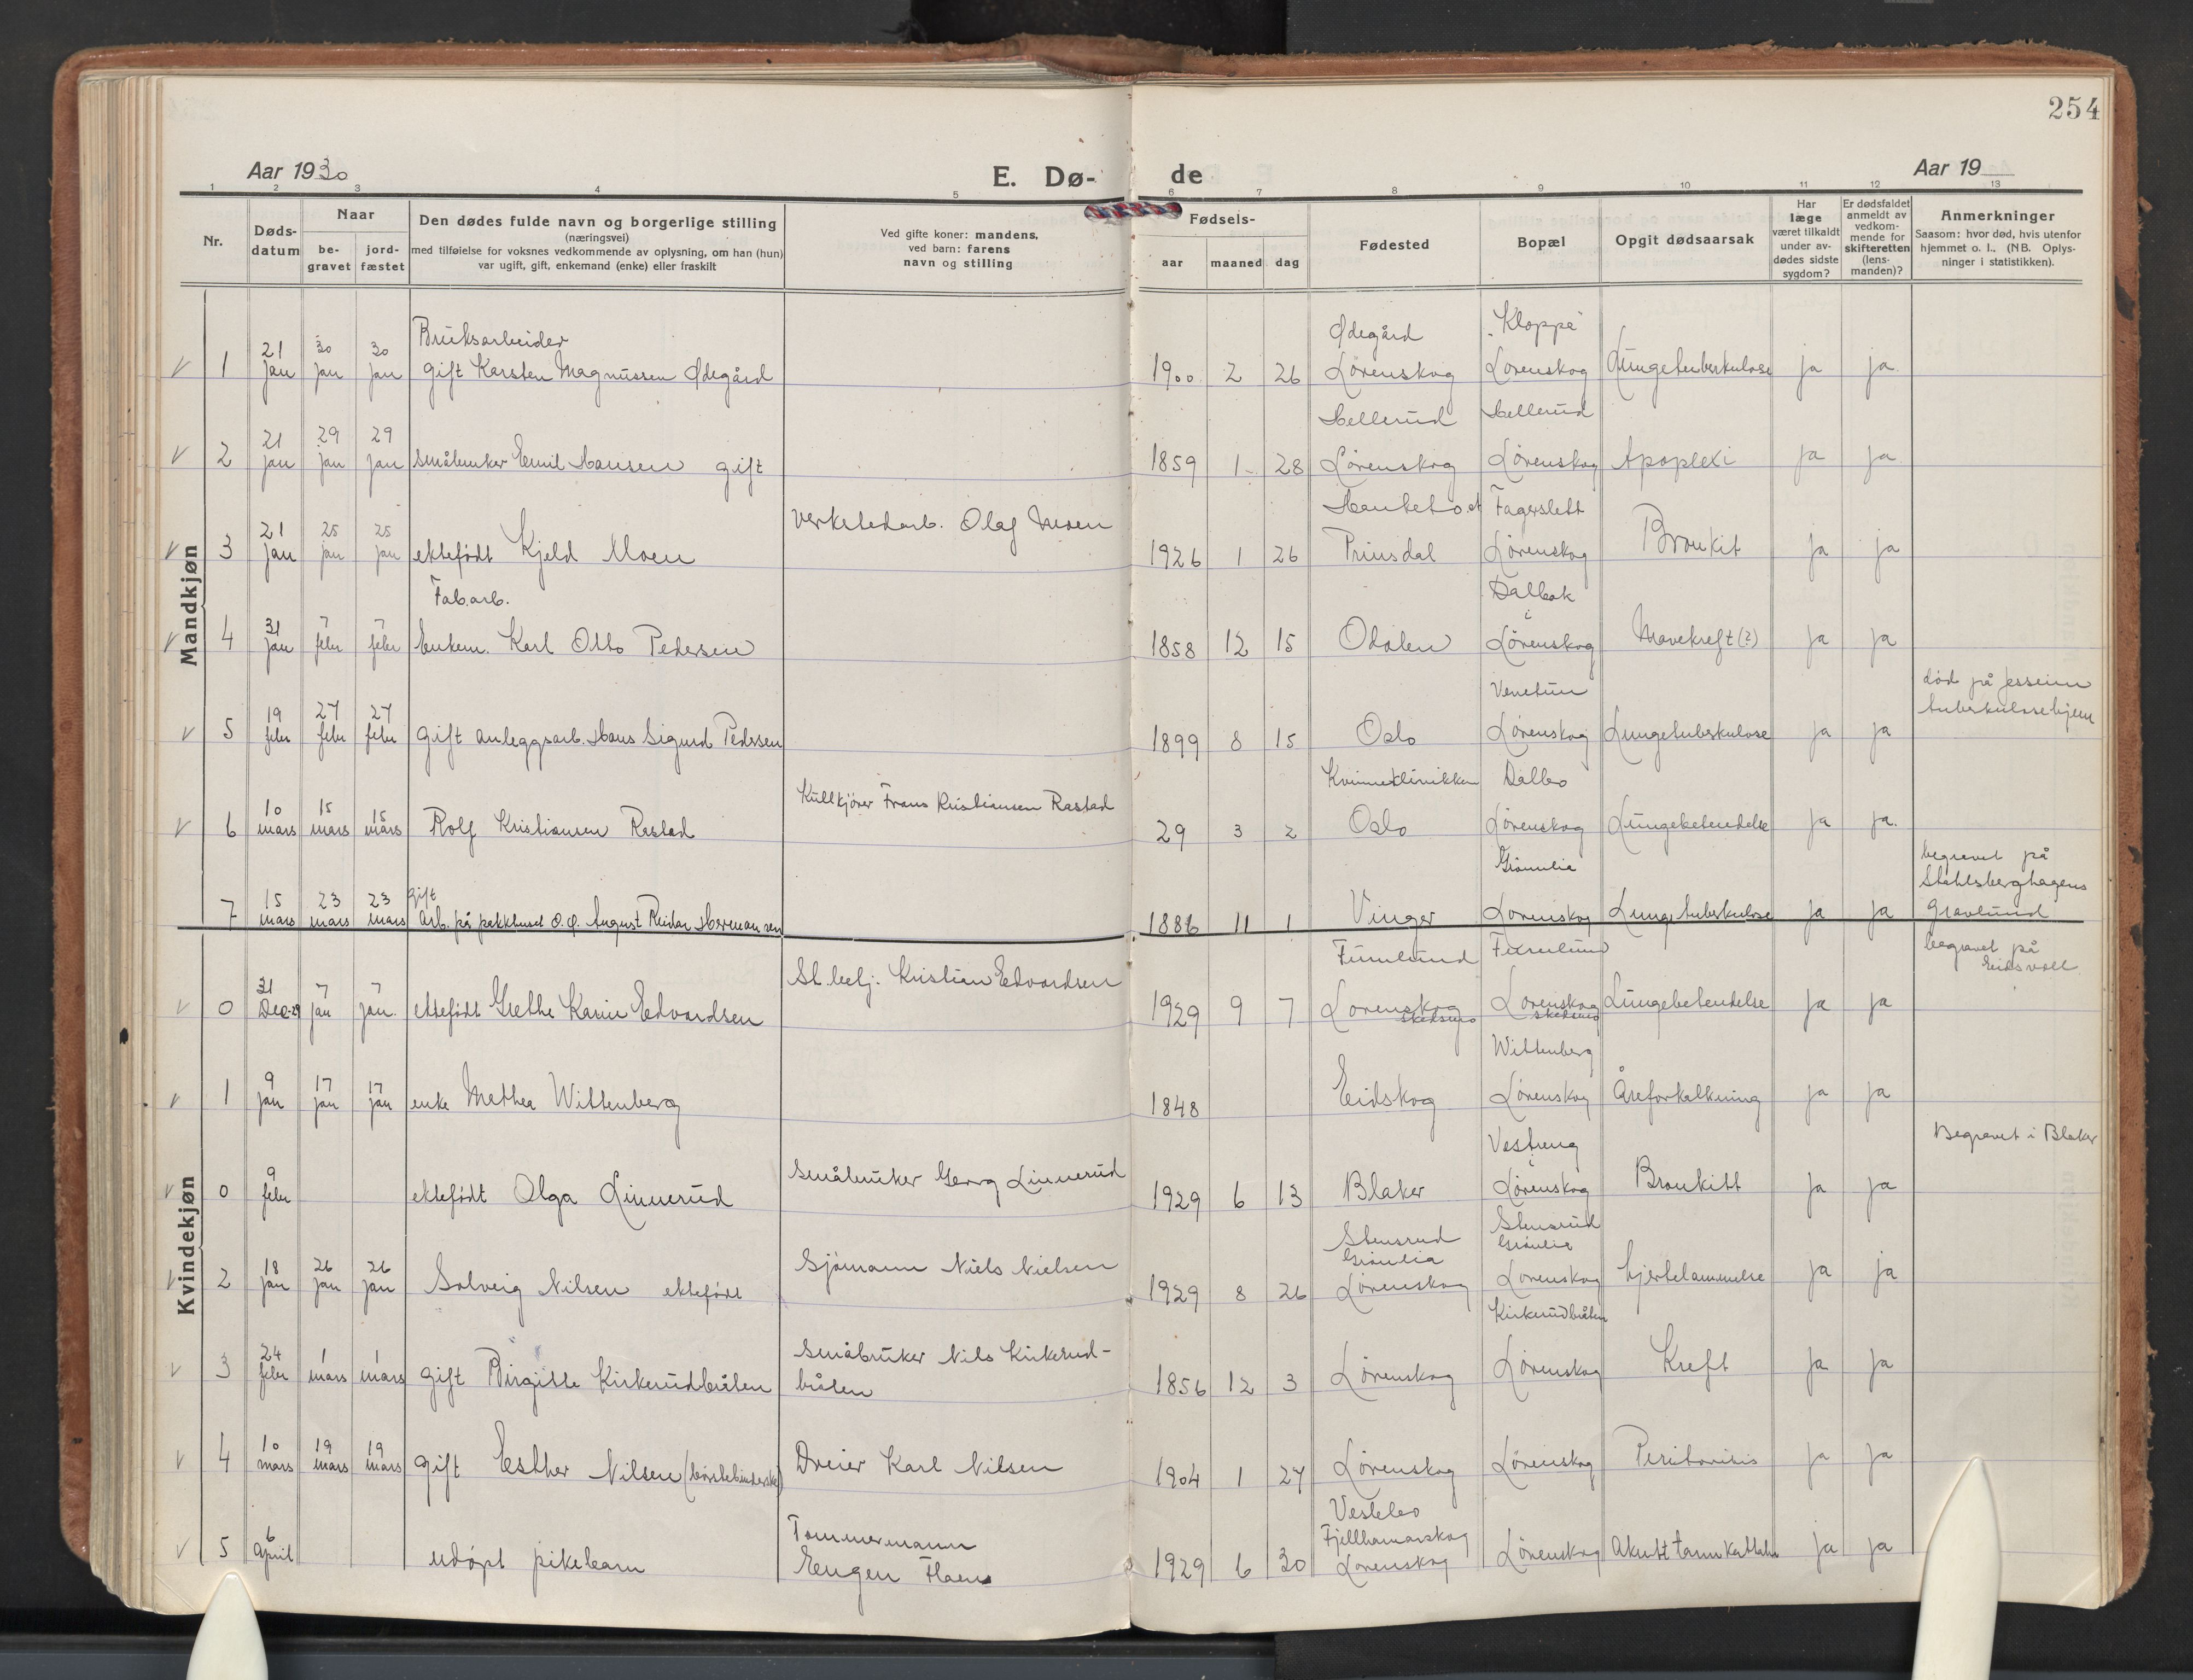 254
Aar 1930
E. Dø-
de
Aar 19
1 2 3 4 5 6 7 8 9 10 11 12 13
Nr.
Døds-
datum
Naar
be-
gravet
jord-
fæstet
Den dødes fulde navn og borgerlige stilling
(næringsvei)
med tilføielse for voksnes vedkommende av oplysning, om han (hun)
var ugift, gift, enkemand (enke) eller fraskilt
Ved gifte koner: mandens,
ved barn: farens
navn og stilling
Fødsels-
aar maaned dag
Fødested
Bopæl
Opgit dødsaarsak
Har
læge
været tilkaldt
under av-
dødes sidste
sygdom?
Er dødsfaldet
anmeldt av
vedkom-
mende for
skifteretten
(lens-
manden)?
Anmerkninger
Saasom: hvor død, hvis utenfor
hjemmet o. l., (NB. Oplys-
ninger i statistikken).
Mandkjøn
Bruksarbeider Ødegård "Kloppa"
v 1 21 jan 30 jan 30 jan gift Karsten Magnussen Ødegård 1900 2 26 Lørenskog Lørenskog Lungetuberkulose ja ja
Hellerud Hellerud
v 2 21 jan 29 jan 29 jan småbruker Emil Hansen gift 1859 1 28 Lørenskog Lørenskog Apoplexi ja ja
Verkstedarb. Olaf Moen Fagerslett
v 3 21 jan 25 jan 25 jan ektefødt Kjeld Moen 1926 1 26 Prinsdal Lørenskog Bronkit ja ja
Fab.arb. Dalbak i
v 4 31 jan 7 febr 7 febr Enkem. Karl Otto Pedersen 1858 12 15 Odalen Lørenskog Mavekreft (?) ja ja
Venetun død på Jessheim
tuberkulosehjem
v 5 19 febr 27 febr 27 febr gift anleggsarb. Hans Sigurd Pedersen 1899 8 15 Oslo Lørenskog Lungetuberkulose ja ja
Kullkjører Frans Kristiansen Rastad Kvinneklinikken Dalbo
v 6 10 mars 15 mars 15 mars Rolf Kristiansen Rastad 29 3 2 Oslo Lørenskog Lungebetendelse ja ja.
Grønlia begravet på
Stahlsberghagens
gift
7 15 mars 23 mars 23 mars Arb. på pakkhuset O. Ø. August Reidar Hermansen 1886 11 1 Vinger Lørenskog Lungetuberkulose ja ja Gravlund
Kvindekjøn
St.betj. Kristian Edvardsen Furulund Furulund begravet på
Eidsvoll
v 0 31 Dec-29 7 jan 7 jan. ektefødt Grethe Karin Edvardsen 1929 9 7 Lørenskog Skedsmo Lørenskog Skedsmo Lungebetendelse ja ja
Wittenberg
v 1 9 jan 17 jan 17 jan enke Mathea Wittenberg 1848 Eidskog Lørenskog Åreforkalkning ja ja
Småbruker Georg Linnerud Vestreng i Begravet i Blaker
v 0 9 febr ektefødt Olga Linnerud 1929 6 13 Blaker Lørenskog Bronkitt ja ja
Sjømann Niels Nielsen Stensrud Grønlia Stensrud Grønlia
v 2 18 jan 26 jan 26 jan Solveig Nilsen ektefødt 1929 8 26 Lørenskog Lørenskog hjertelammelse ja ja
Småbruker Nils Kirkerud- Kirkerudbråten
v 3 24 febr 1 mars 1 mars gift Birgitte Kirkerudbråten bråten 1856 12 3 Lørenskog Lørenskog Kreft ja ja
v 4 10 mars 19 mars 19 mars gift Esther Nilsen (børstebinderske) Dreier Karl Nilsen 1904 1 27 Lørenskog Lørenskog ja ja
Tømmermann Vestbo
Fjellhamarskog
v 5 6 April udøpt pikebarn Eugen 1929 6 30 Lørenskog Lørenskog Akutt tarmkatarrh ja ja